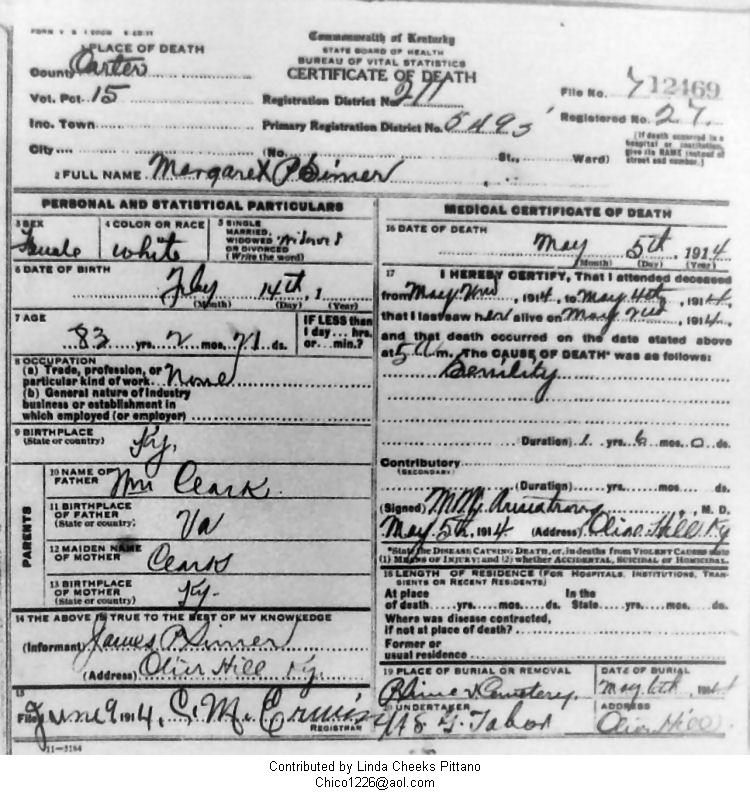 FORM V S
Commonwealth of Kentucky
1 PLACE OF DEATH
STATE BOARD OF HEALTH
BUREAU OF VITAL STATISTICS
County Carter
CERTIFICATE OF DEATH
File No. 12469
Vot. Pct. 15
Registration District No. 211
Registered No. 27.
Inc. Town
Primary Registration District No. 5493
(If death occurred in a
hospital or institution,
give its NAME instead of
street and number.)
City
(No. St., Ward)
2 FULL NAME Margaret
PERSONAL AND STATISTICAL PARTICULARS
3 SEX
Female
4 COLOR OR RACE
white
5 SINGLE
MARRIED,
WIDOWED
OR DIVORCED
(Write the word)
6 DATE OF BIRTH
Feby 14th, 1
(Month) (Day) (Year)
7 AGE
83 yrs. 2 mos. 21 ds.
IF LESS than
1 day... hrs.
or... min.?
8 OCCUPATION
(a) Trade, profession, or
particular kind of work None
(b) General nature of industry
business or establishment in
which employed (or employer)
9 BIRTHPLACE
(State or country) Ky.
PARENTS
10 NAME OF
FATHER Wm Clark
11 BIRTHPLACE
OF FATHER
(State or country) Va
12 MAIDEN NAME
OF MOTHER Clark
13 BIRTHPLACE
OF MOTHER
(State or country) Ky.
14 THE ABOVE IS TRUE TO THE BEST OF MY KNOWLEDGE
(Informant) James P
(Address) Olive Hill Ky.
15
Filed June 9 1914, C. M. Erwin
REGISTRAR
11-3184
MEDICAL CERTIFICATE OF DEATH
16 DATE OF DEATH
May 5th, 1914
(Month) (Day) (Year)
17 I HEREBY CERTIFY, That I attended deceased
from May 2nd, 1914, to May 4th, 1914,
that I last saw her alive on May 2nd, 1914,
and that death occurred on the date stated above
at 5 m. The CAUSE OF DEATH* was as follows:
Senility
(Duration) 1 yrs. 6 mos. 0 ds.
Contributory
(SECONDARY)
(Duration) yrs. mos. ds.
(Signed) Armstrong, M. D.
May 5th, 1914 (Address) Olive Hill Ky
*State the DISEASE CAUSING DEATH, or, in deaths from VIOLENT CAUSES state
(1) MEANS OF INJURY; and (2) whether ACCIDENTAL, SUICIDAL or HOMICIDAL.
18 LENGTH OF RESIDENCE (FOR HOSPITALS, INSTITUTIONS, TRANSIENTS OR RECENT RESIDENTS)
At place
of death yrs. mos. ds.
In the
State yrs. mos. ds.
Where was disease contracted,
if not at place of death?
Former or
usual residence
19 PLACE OF BURIAL OR REMOVAL
Cemetery
DATE OF BURIAL
May 6th, 1914
20 UNDERTAKER
G. Tabor
ADDRESS
Olive Hill
Contributed by Linda Cheeks Pittano
Chico1226@aol.com